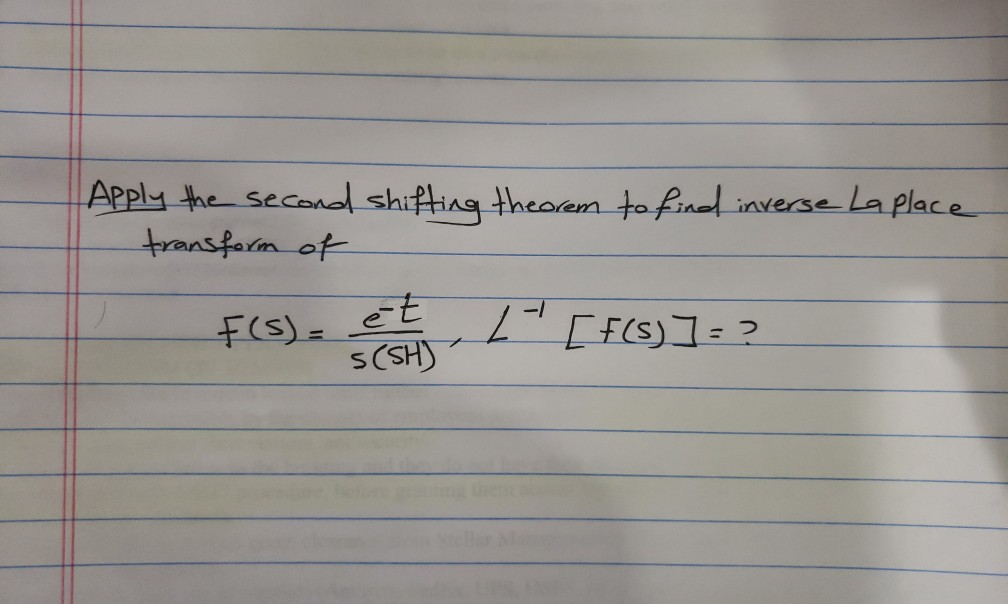 Apply the second shifting theorem to find inverse Laplace
transform of
F(S) = e^-t / s(S+1) , L^-1 [F(S)] = ?